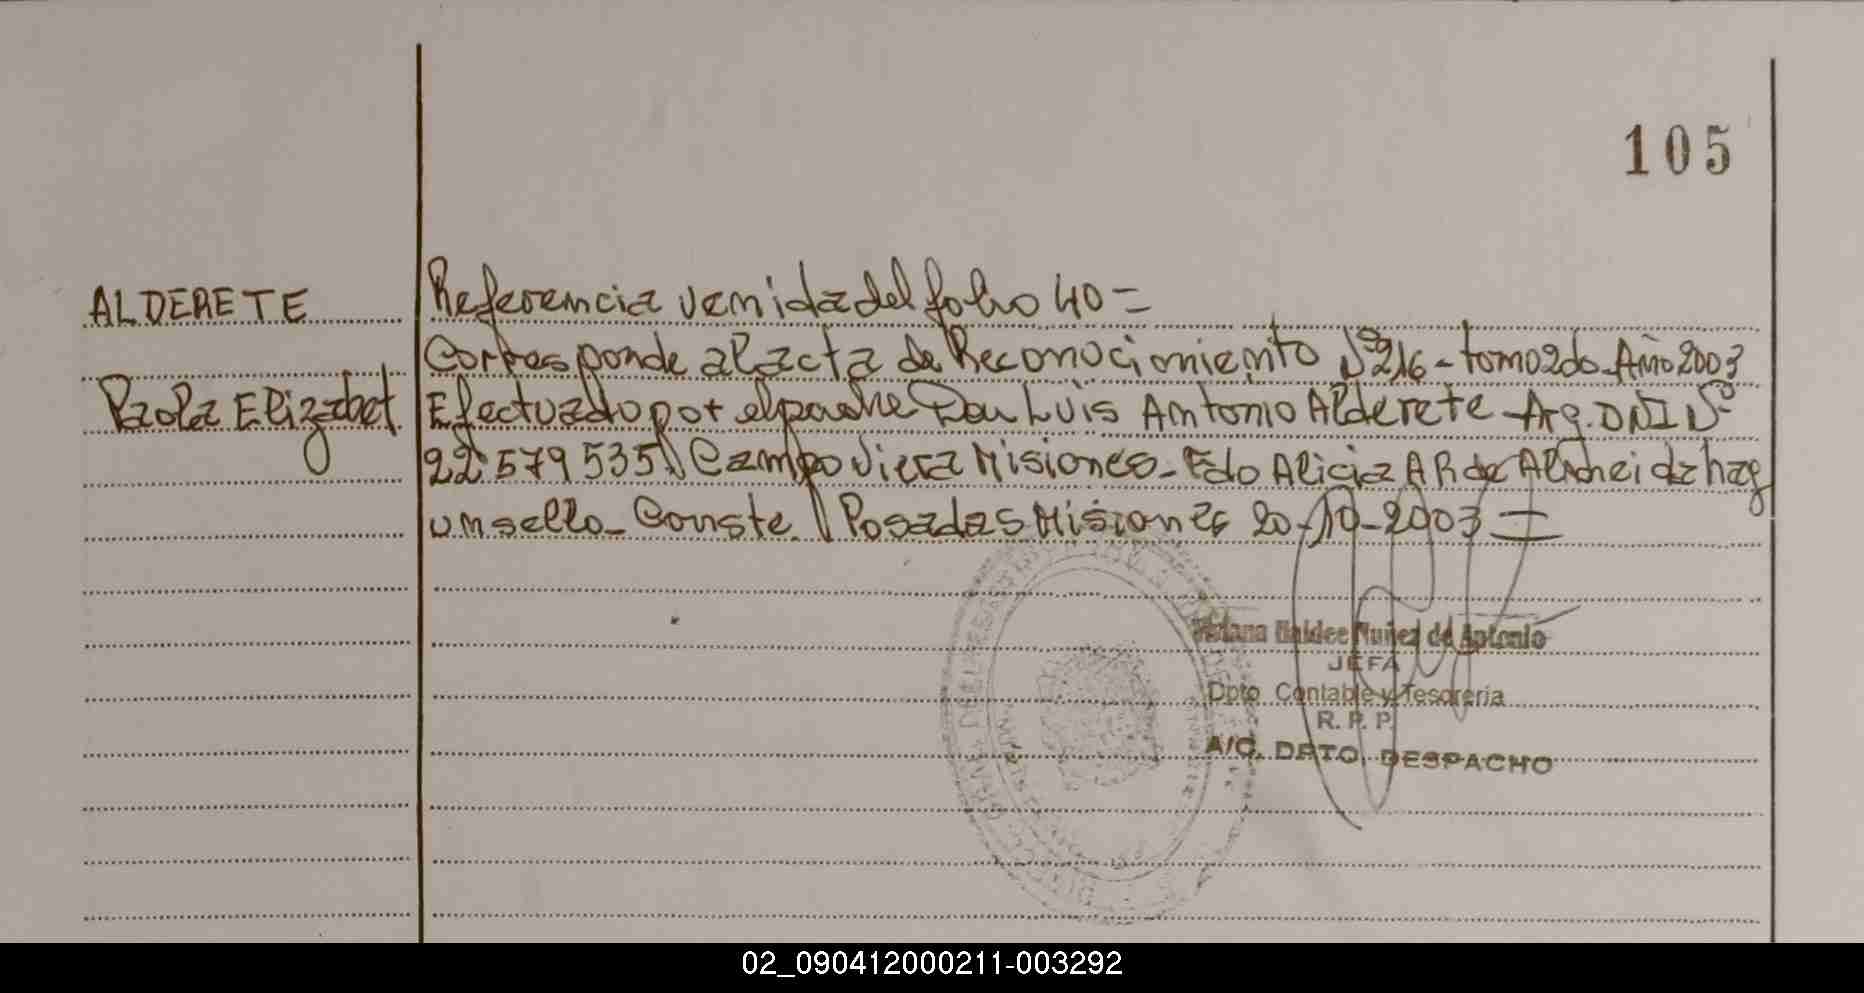 105
ALDERETE
Paola Elizabet.
Referencia venida del folio 40=
Corresponde al acta de Reconocimiento Nº 216 - tomo 2do - Año 2003
Efectuado por el padre Don Luis Antonio Alderete - Arg. DNI Nº
22579535 Campo Viera Misiones - Fdo Alicia A R de Almeida hay
un sello - Conste. Posadas Misiones 20-10-2003=
Haidee Nuñez de Antonio
JEFA
Dpto Contable y Tesoreria
R. P. P.
A/C. DPTO. DESPACHO
02_090412000211-003292